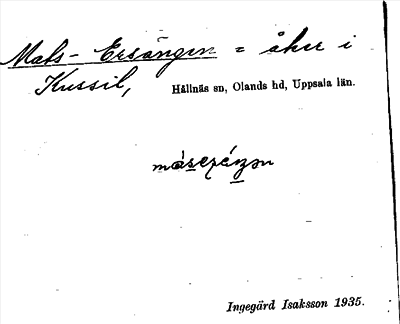 Mats-Ersängen = åker i
Kussil, Hållnäs sn, Olands hd, Uppsala län.
Ingegärd Isaksson 1935.